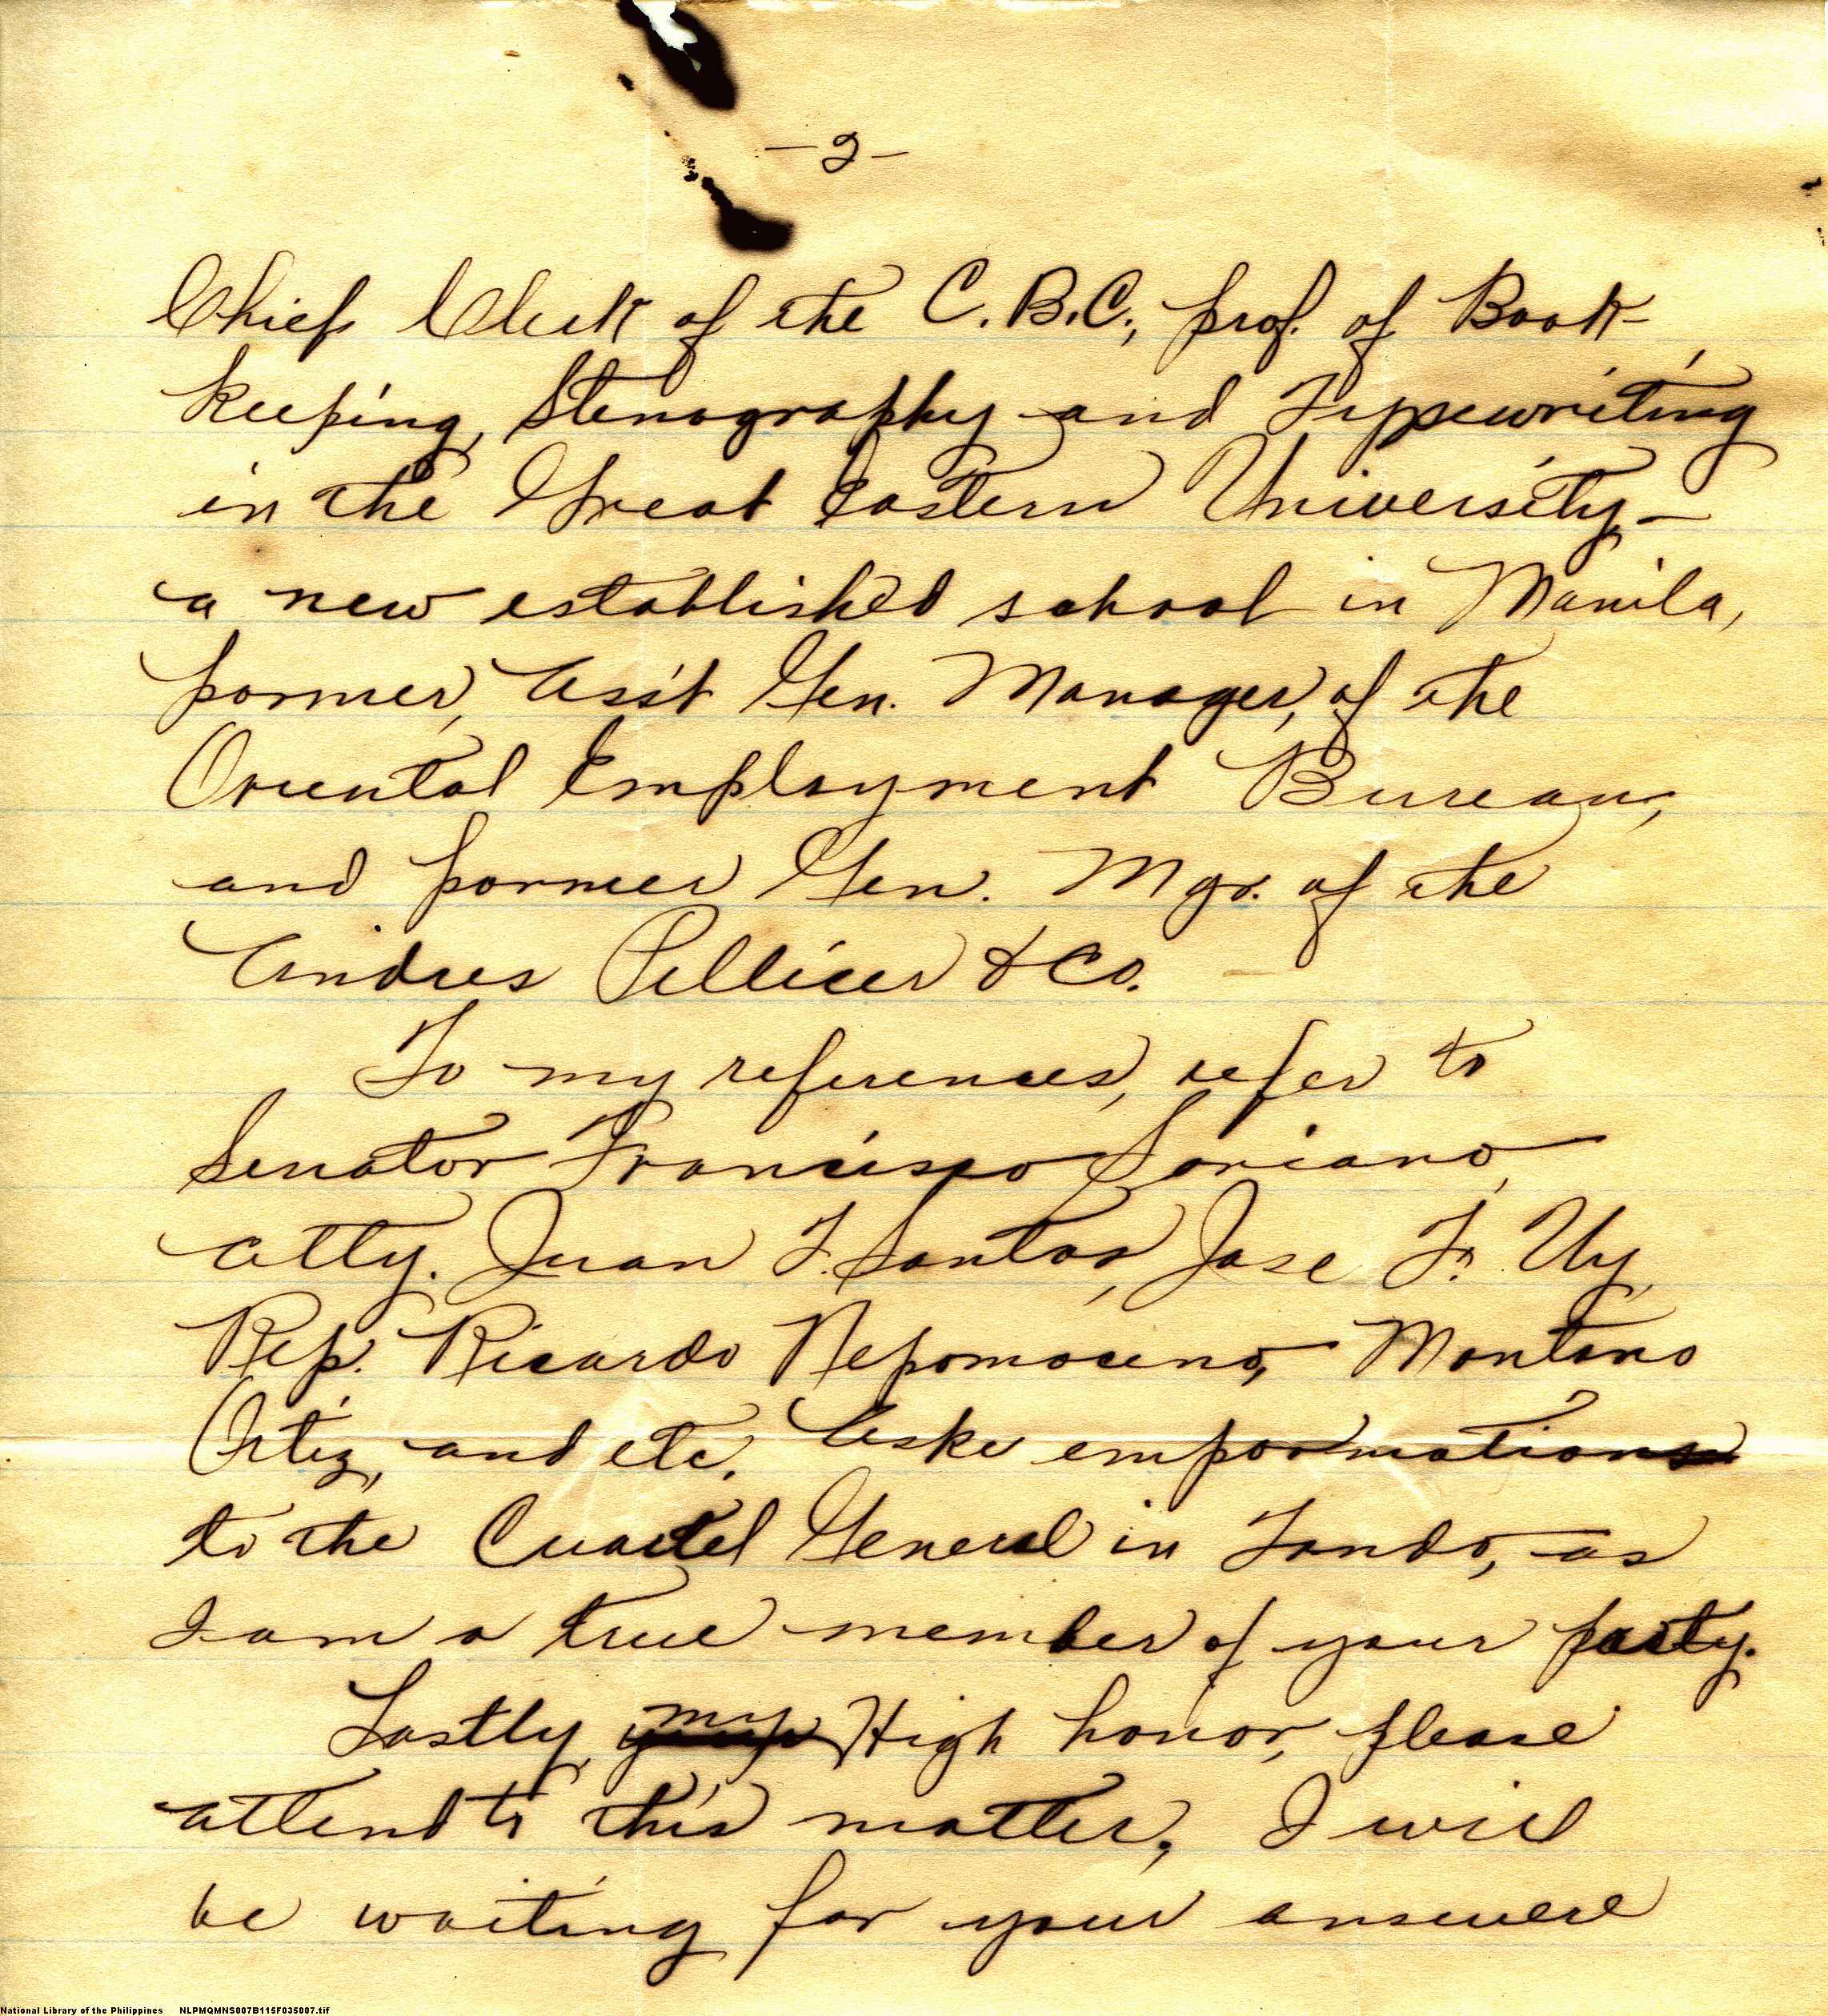 -2-
Chief Clerk of the C.B.C., prof. of Book-
keeping, Stenography and Typewriting
in the Great Eastern University -
a new established school in Manila,
pormer, Ass't Gen. Manager, of the
Oriental Employment Bureau,
and pormer Gen. Mgr. of the
Andres Pellicer & Co.
To my references, refer to
Senator Francisco Soriano,
atty. Juan T. Santos, Jose Fr. Uy,
Rep. Ricardo Nepomoceno, Montano
Ortiz, and etc. Aske empormation
to the Cuartel General in Tondo, as
I am a true member of your party.
Lastly, my High honor, please
attend to this matter, I will
be waiting for your answere
National Library of the Philippines NLPMQMNS007B115F035007.tif